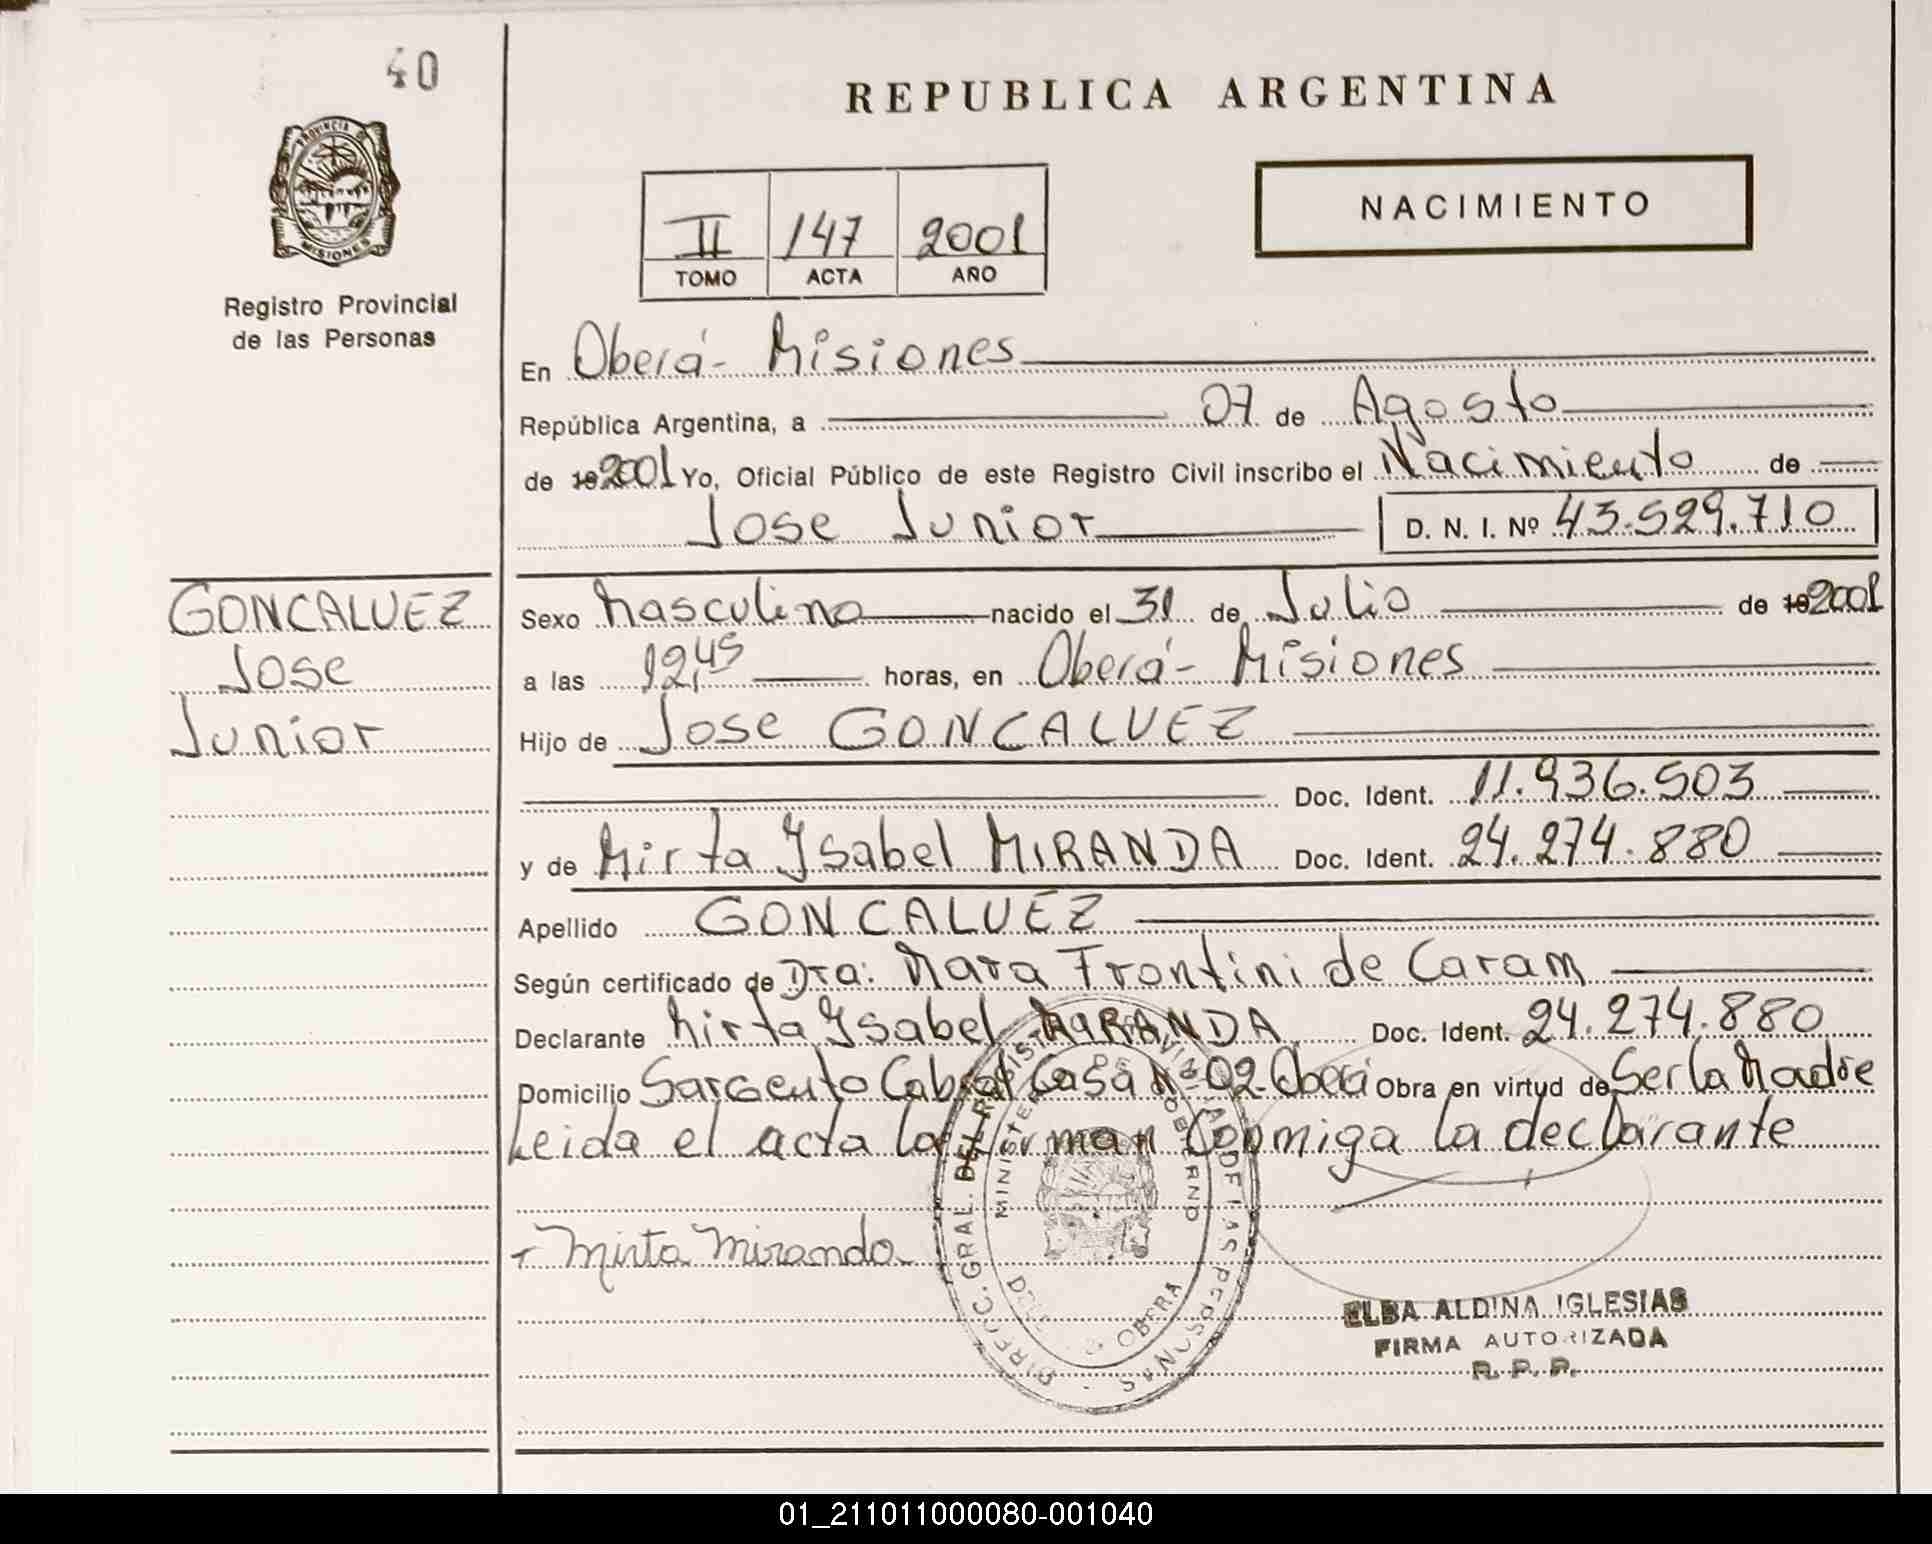 40
PROVINCIA DE
MISIONES
Registro Provincial
de las Personas
REPUBLICA ARGENTINA
II 147 2001
TOMO ACTA AÑO
NACIMIENTO
En Oberá - Misiones
República Argentina, a 07 de Agosto
de 19 2001 Yo, Oficial Público de este Registro Civil inscribo el Nacimiento de
Jose Junior D. N. I. Nº 43.529.710
GONCALVEZ
Jose
Junior
Sexo Masculino nacido el 31 de Julio de 19 2001
a las 12,45 horas, en Oberá - Misiones
Hijo de Jose GONCALVEZ
Doc. Ident. 11.936.503
y de Mirta Ysabel MIRANDA Doc. Ident. 24.274.880
Apellido GONCALVEZ
Según certificado de Dra: Mara Frontini de Caram
Declarante Mirta Ysabel MIRANDA Doc. Ident. 24.274.880
Domicilio Sargento Cabral Casa Nº 02 Oberá Obra en virtud de Ser la Madre
Leida el acta la firman Conmigo la declarante
Mirta Miranda
DIRECC. GRAL. DEL REGISTRO PROVINCIAL DE LAS PERSONAS
MINISTERIO DE GOBIERNO
OBERA
ELBA ALDINA IGLESIAS
FIRMA AUTORIZADA
R. P. P.
01_211011000080-001040